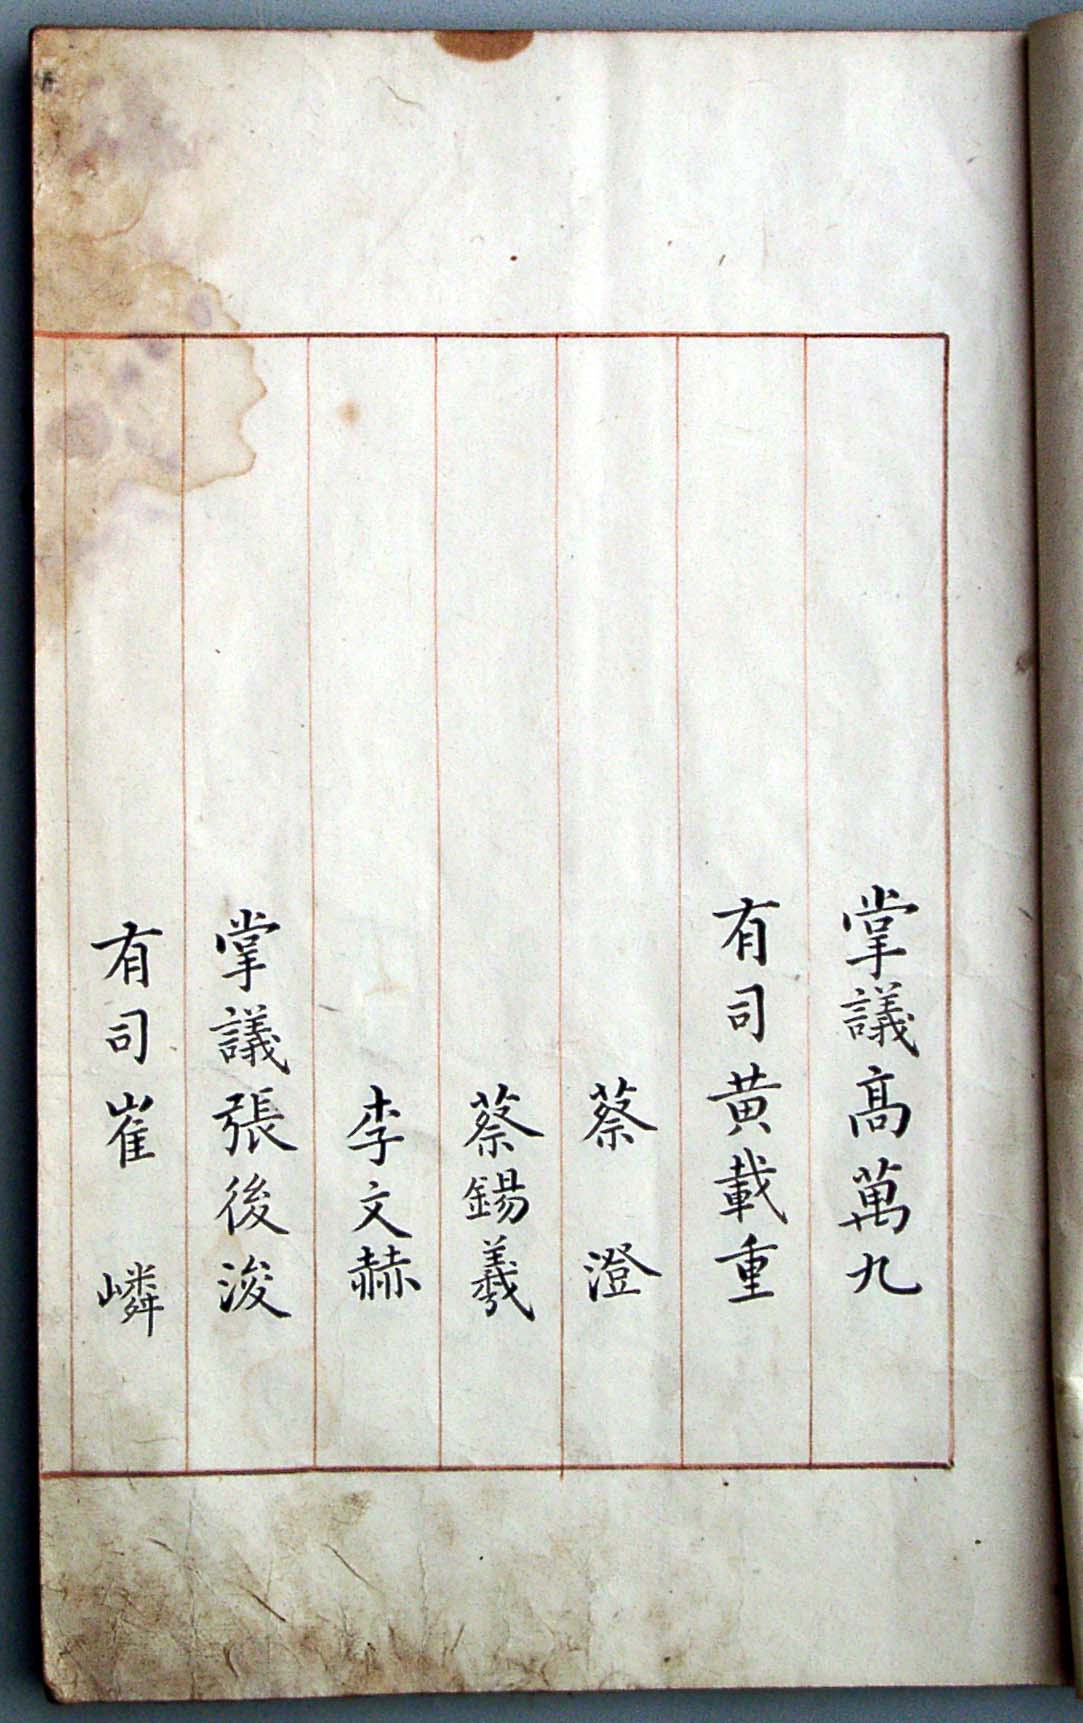 掌議高萬九
有司黄載重
蔡澄
蔡錫羲
李文赫
掌議張後浚
有司崔嶙